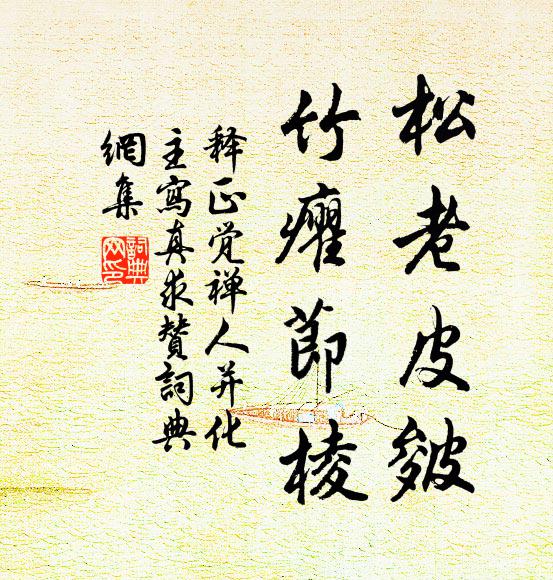 松老皮皴
竹癯節棱
释正觉禅人并化
主寫真求贊詞典
網集
詞典
网印